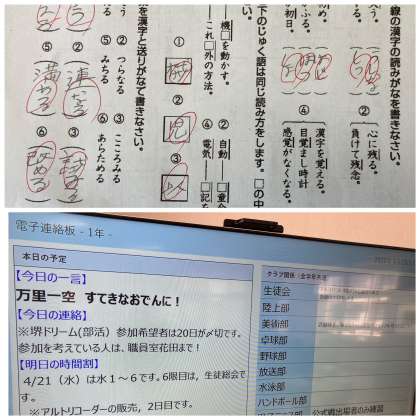 線の漢字の読みがなを書きなさい。
② 心に残る。
負けて残念。
④ 漢字を覚える。
目覚まし時計
感覚がなくなる。
初日。
下のじゅく語は同じ読み方をします。□の中
機□を動かす。
これ□外の方法。
② 自動
④ 電気
①
②
児
③
以
を漢字と送りがなで書きなさい。
② つらなる
⑤ みちる
③ こころみる
⑥ あらためる
②
連なる
③
試みる
⑤
満ちる
⑥
改める
電子連絡板 - 1年 -
本日の予定
【今日の一言】
万里一空 すてきなおでんに！
【今日の連絡】
※堺ドリーム(部活）参加希望者は20日が〆切です。
参加を考えている人は、職員室花田まで！
【明日の時間割】
4/21（水）は水１～６です。6限目は、生徒総会で
す。
※アルトリコーダーの販売，2日目です。
クラブ関係
生徒会
陸上部
美術部
卓球部
野球部
放送部
水泳部
ハンドボール部
公式戦出場者のみ練習